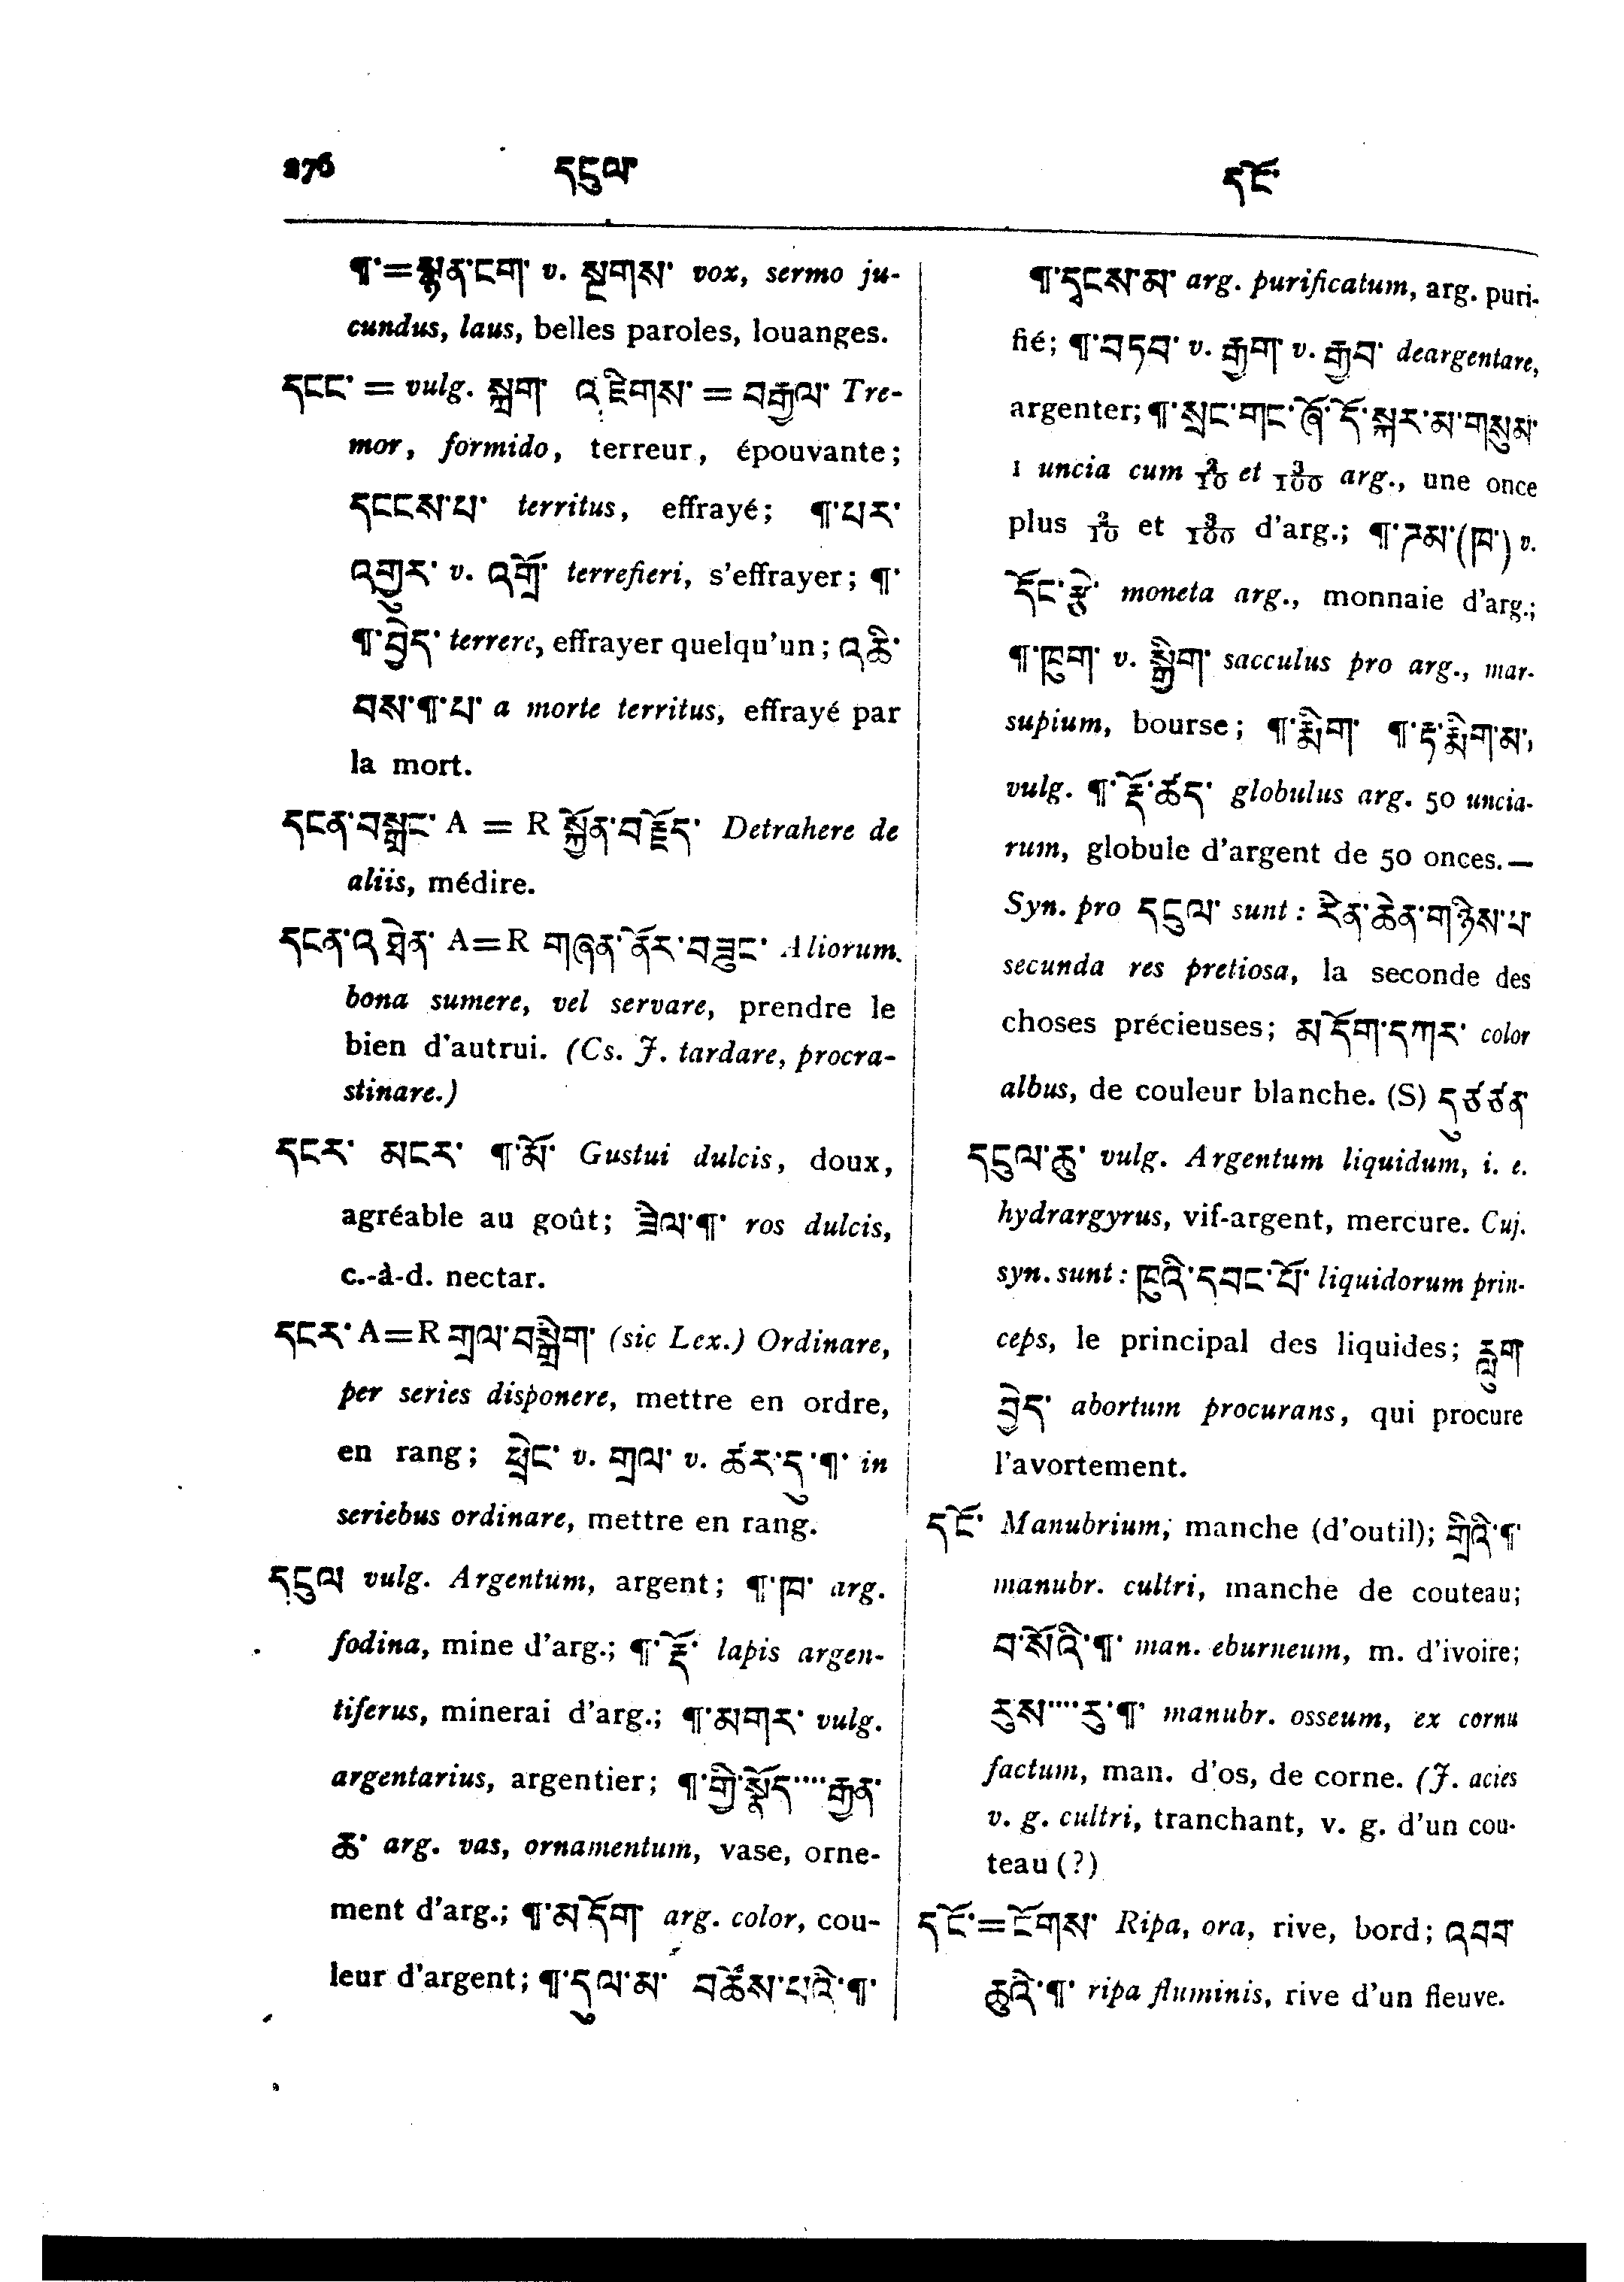 276 དངུལ་ དངོ་
¶་=སྙན་ངག་ v. སྔགས་ vox, sermo ju-
cundus, laus, belles paroles, louanges.
དངང་ = vulg. སྐྲག་ འཇིགས་ = བརྒྱལ་ Tre-
mor, formido, terreur, épouvante;
དངངས་པ་ territus, effrayé; ¶་པར་
འགྱུར་ v. འགྲོ་ terrefieri, s'effrayer; ¶་
¶་བྱེད་ terrere, effrayer quelqu'un; འཆི་
བས་¶་པ་ a morte territus, effrayé par
la mort.
དངན་བསྒྲང་ A = R སྐྱོན་བརྗོད་ Detrahere de
aliis, médire.
དངན་འཐེན་ A=R གཞན་ནོར་བཟུང་ Aliorum
bona sumere, vel servare, prendre le
bien d'autrui. (Cs. J. tardare, procra-
stinare.)
དངར་ མངར་ ¶་མོ་ Gustui dulcis, doux,
agréable au goût; ཟིལ་¶་ ros dulcis,
c.-à-d. nectar.
དངར་ A=R གྲལ་བསྒྲིག་ (sic Lex.) Ordinare,
per series disponere, mettre en ordre,
en rang; ཕྲེང་ v. གྲལ་ v. ཚར་དུ་¶་ in
seriebus ordinare, mettre en rang.
དངུལ vulg. Argentum, argent; ¶་ཁ་ arg.
fodina, mine d'arg.; ¶་རྡོ་ lapis argen-
tiferus, minerai d'arg.; ¶་མགར་ vulg.
argentarius, argentier; ¶་གྱི་སྣོད་....རྒྱན་
ཆ་ arg. vas, ornamentum, vase, orne-
ment d'arg.; ¶་མདོག་ arg. color, cou-
leur d'argent; ¶་དུལ་མ་ བཙོས་པའི་¶་
¶་དྭངས་མ་ arg. purificatum, arg. puri-
fié; ¶་བཏབ་ v. རྒྱག་ v. རྒྱབ་ deargentare,
argenter; ¶་སྲང་གང་ཞོ་དོ་སྐར་མ་གསུམ་
1 uncia cum 2/10 et 3/100 arg., une once
plus 2/10 et 3/100 d'arg.; ¶་ཊམ་(ཁ་) v.
དོང་རྩེ་ moneta arg., monnaie d'arg.;
¶་ཁུག་ v. སྒྱིག་ sacculus pro arg., mar-
supium, bourse; ¶་རྨིག་ ¶་རྟ་རྨིག་མ་,
vulg. ¶་རྡོ་ཚད་ globulus arg. 50 uncia-
rum, globule d'argent de 50 onces.—
Syn. pro དངུལ་ sunt: རིན་ཆེན་གཉིས་པ་
secunda res pretiosa, la seconde des
choses précieuses; མདོག་དཀར་ color
albus, de couleur blanche. (S)
དངུལ་ཆུ་ vulg. Argentum liquidum, i. e.
hydrargyrus, vif-argent, mercure. Cuj.
syn. sunt: ཁུའི་དབང་པོ་ liquidorum prin-
ceps, le principal des liquides; རླུག
བྱེད་ abortum procurans, qui procure
l'avortement.
དངོ་ Manubrium, manche (d'outil); གྲིའི་¶་
manubr. cultri, manche de couteau;
བ་སོའི་¶་ man. eburneum, m. d'ivoire;
རུས་....རུ་¶་ manubr. osseum, ex cornu
factum, man. d'os, de corne. (J. acies
v. g. cultri, tranchant, v. g. d'un cou-
teau (?)
དངོ་=ངོགས་ Ripa, ora, rive, bord; འབབ་
ཆུའི་¶་ ripa fluminis, rive d'un fleuve.